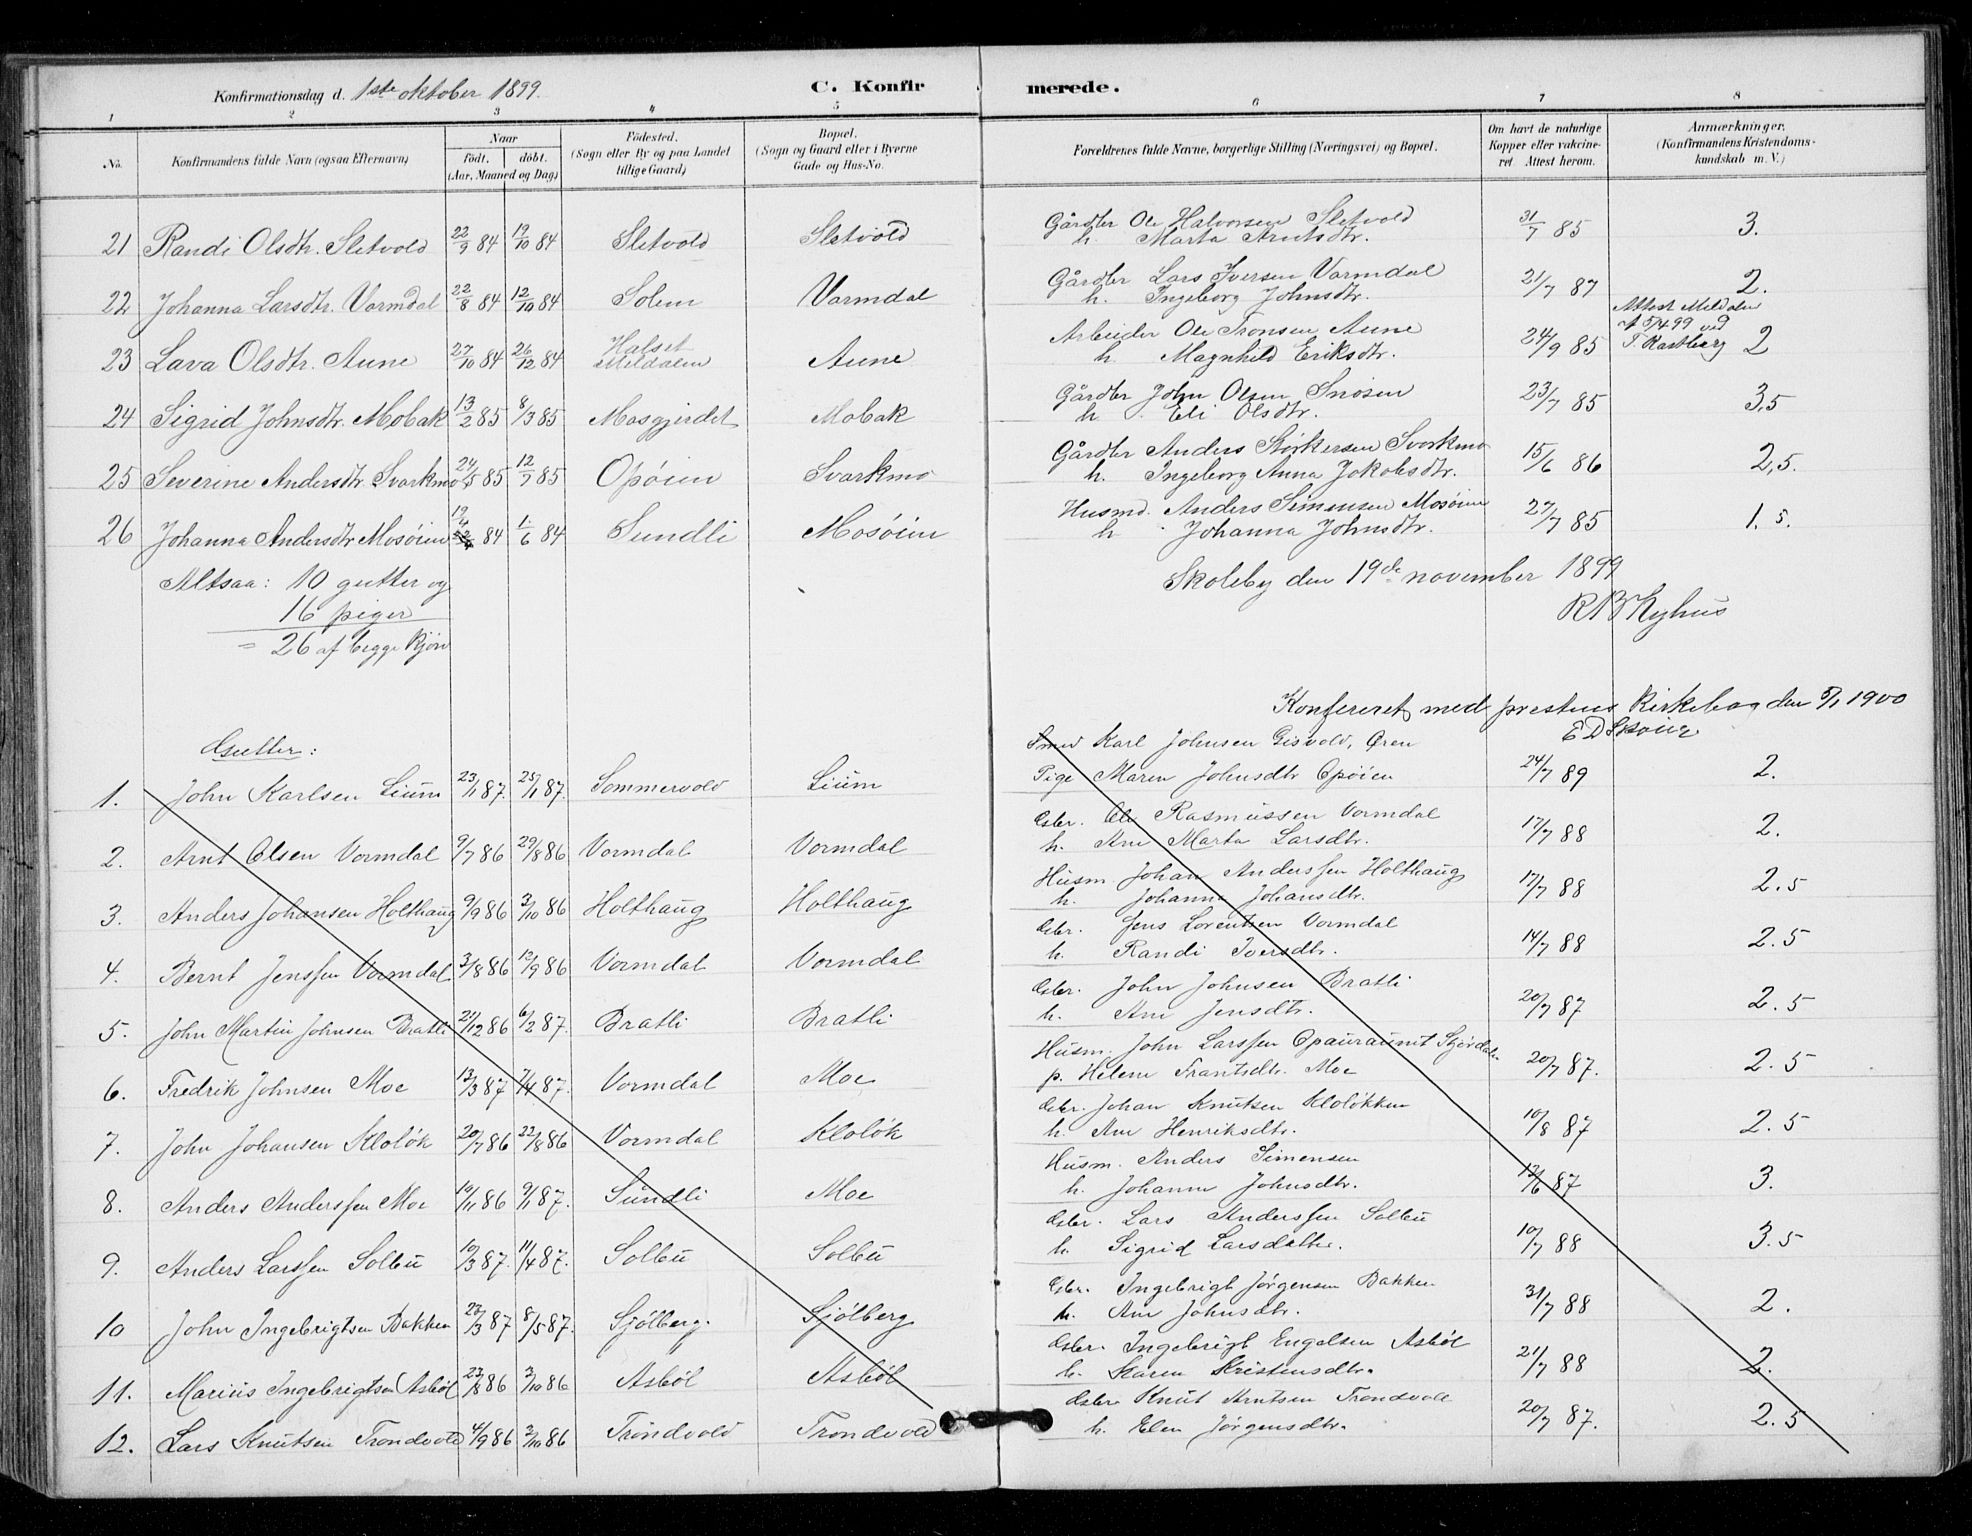 Konfirmationsdag d. 1ste oktober 1899. C. Konfir merede.
1 2 3 4 5 6 7 8
No. Konfirmandens fulde Navn (ogsaa Efternavn) Naar født. døbt. (Aar, Maaned og Dag) Fødested. (Sogn eller By og paa Landet tillige Gaard) Bopæl. (Sogn og Gaard eller i Byerne Gade og Hus-No. Forældrenes fulde Navne, borgerlige Stilling (Næringsvei) og Bopæl. Om havt de naturlige Kopper eller vakcineret. Attest herom. Anmærkninger. (Konfirmandens Kristendomskundskab m. V.)
21 Randi Olsdtr. Sletvold 22/9 84 19/10 84 Sletvold Sletvold Gårdbr Ole Halvorsen Sletvold 31/7 85 3.
h. Marta Arntsdtr.
22 Johanna Larsdtr. Vormdal 22/8 84 12/10 84 Solem Vormdal Gårdbr Lars Iversen Vormdal 21/7 87 2.
h. Ingeborg Johnsdtr.
23 Lava Olsdtr. Aune 27/10 84 26/12 84 Halset Meldalen Aune Arbeider Ole Tronsen Aune 24/9 85 Attest Meldalen 5/4 99 ved 2
h Magnhild Eriksdtr.
24 Sigrid Johnsdtr. Mobak 13/2 85 8/3 85 Mosgjerdet Mobak Gårdbr John Olsen Snøsen 23/7 85 3,5
h. Eli Olsdtr.
25 Severine Andersdtr Svarkmo 24/5 85 12/7 85 Opøien Svarkmo Gårdbr Anders Størkersen Svorkmo 15/6 86 2,5.
h. Ingeborg Anna Jakobsdtr.
26 Johanna Andersdtr Mosøien 19/4 84 1/6 84 Sundli Mosøien Husmd. Anders Simensen Mosøien 27/7 85 1.5.
h Johanna Johnsdtr.
Altsaa: 10 gutter og
16 piger
= 26 af begge Kjøn
Skoleby den 19de november 1899
R N Nyhus
Konfereret med prestens Kirkebog den 5/1 1900
Gutter:
1. John Karlsen Lium 23/1 87. 25/1 87. Sommervold Lium Smed Karl Johnsen Gisvold, Øren 24/7 89 2.
Pige Maren Johnsdtr Opøien
2. Arnt Olsen Vormdal 9/7 86 29/8 86 Vormdal Vormdal Gsbr. Ole Rasmussen Vormdal 17/7 88 2.
h. Ane Marta Larsdtr.
3. Anders Johansen Holthaug 9/9 86 3/10 86 Holthaug Holthaug Husm. Johan Anderssen Holthaug 17/7 88 2.5
h. Johanna Johansdtr.
4. Bernt Jenssen Vormdal 3/8 86 12/9 86 Vormdal Vormdal Gsbr. Jens Lorentsen Vormdal 14/7 88 2.5
h. Randi Iversdtr.
5. John Martin Johnsen Bratli 21/12 86 6/2 87. Bratli Bratli Gsbr. John Johnsen Bratli 20/7 87 2.5
h. Ane Jensdtr.
6. Fredrik Johnsen Moe 13/3 87 7/4 87. Vormdal Moe Husm. John Larssen 20/7 87. 2.5
p. Helene Frantsdtr. Moe
7. John Johansen Kloløk 20/7 86 22/8 86 Vormdal Kloløk Gsbr. Johan Knutsen Kloløkken 10/8 87 2.5
h. Ane Henriksdtr.
8. Anders Anderssen Moe 19/11 86 9/1 87. Sundli Moe Husm. Anders Simensen 13/6 87 3.
h. Johanne Johnsdtr.
9. Anders Larssen Solbu 10/3 87. 11/4 87. Solbu Solbu Gsbr. Lars Anderssen Solbu 10/7 88 3.5
h. Sigrid Larsdatter.
10 John Ingebrigtsen Bakken 23/3 87 8/5 87. Sjølberg. Sjølberg Gsbr. Ingebrigt Jørgensen Bakken 31/7 88 2.
h. Ane Johnsdtr.
11. Marius Ingebrigtsen Asbøl 23/8 86 3/10 86 Asbøl Asbøl Gsbr. Ingebrigt Engelsen Asbøl 21/7 88 2.
h. Karen Kristensdtr.
12. Lars Knutsen Trondvold 4/9 86 3/10 86 Trondvold Trondvold Gsbr Knut Arntsen Trondvold 20/7 87. 2.5
h. Elen Jørgensdtr.